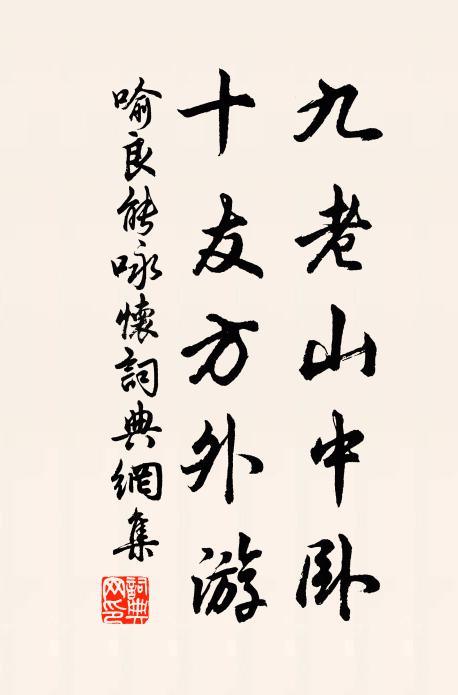 九老山中卧
十友方外游
喻良能咏懷詞典網集
詞典网印